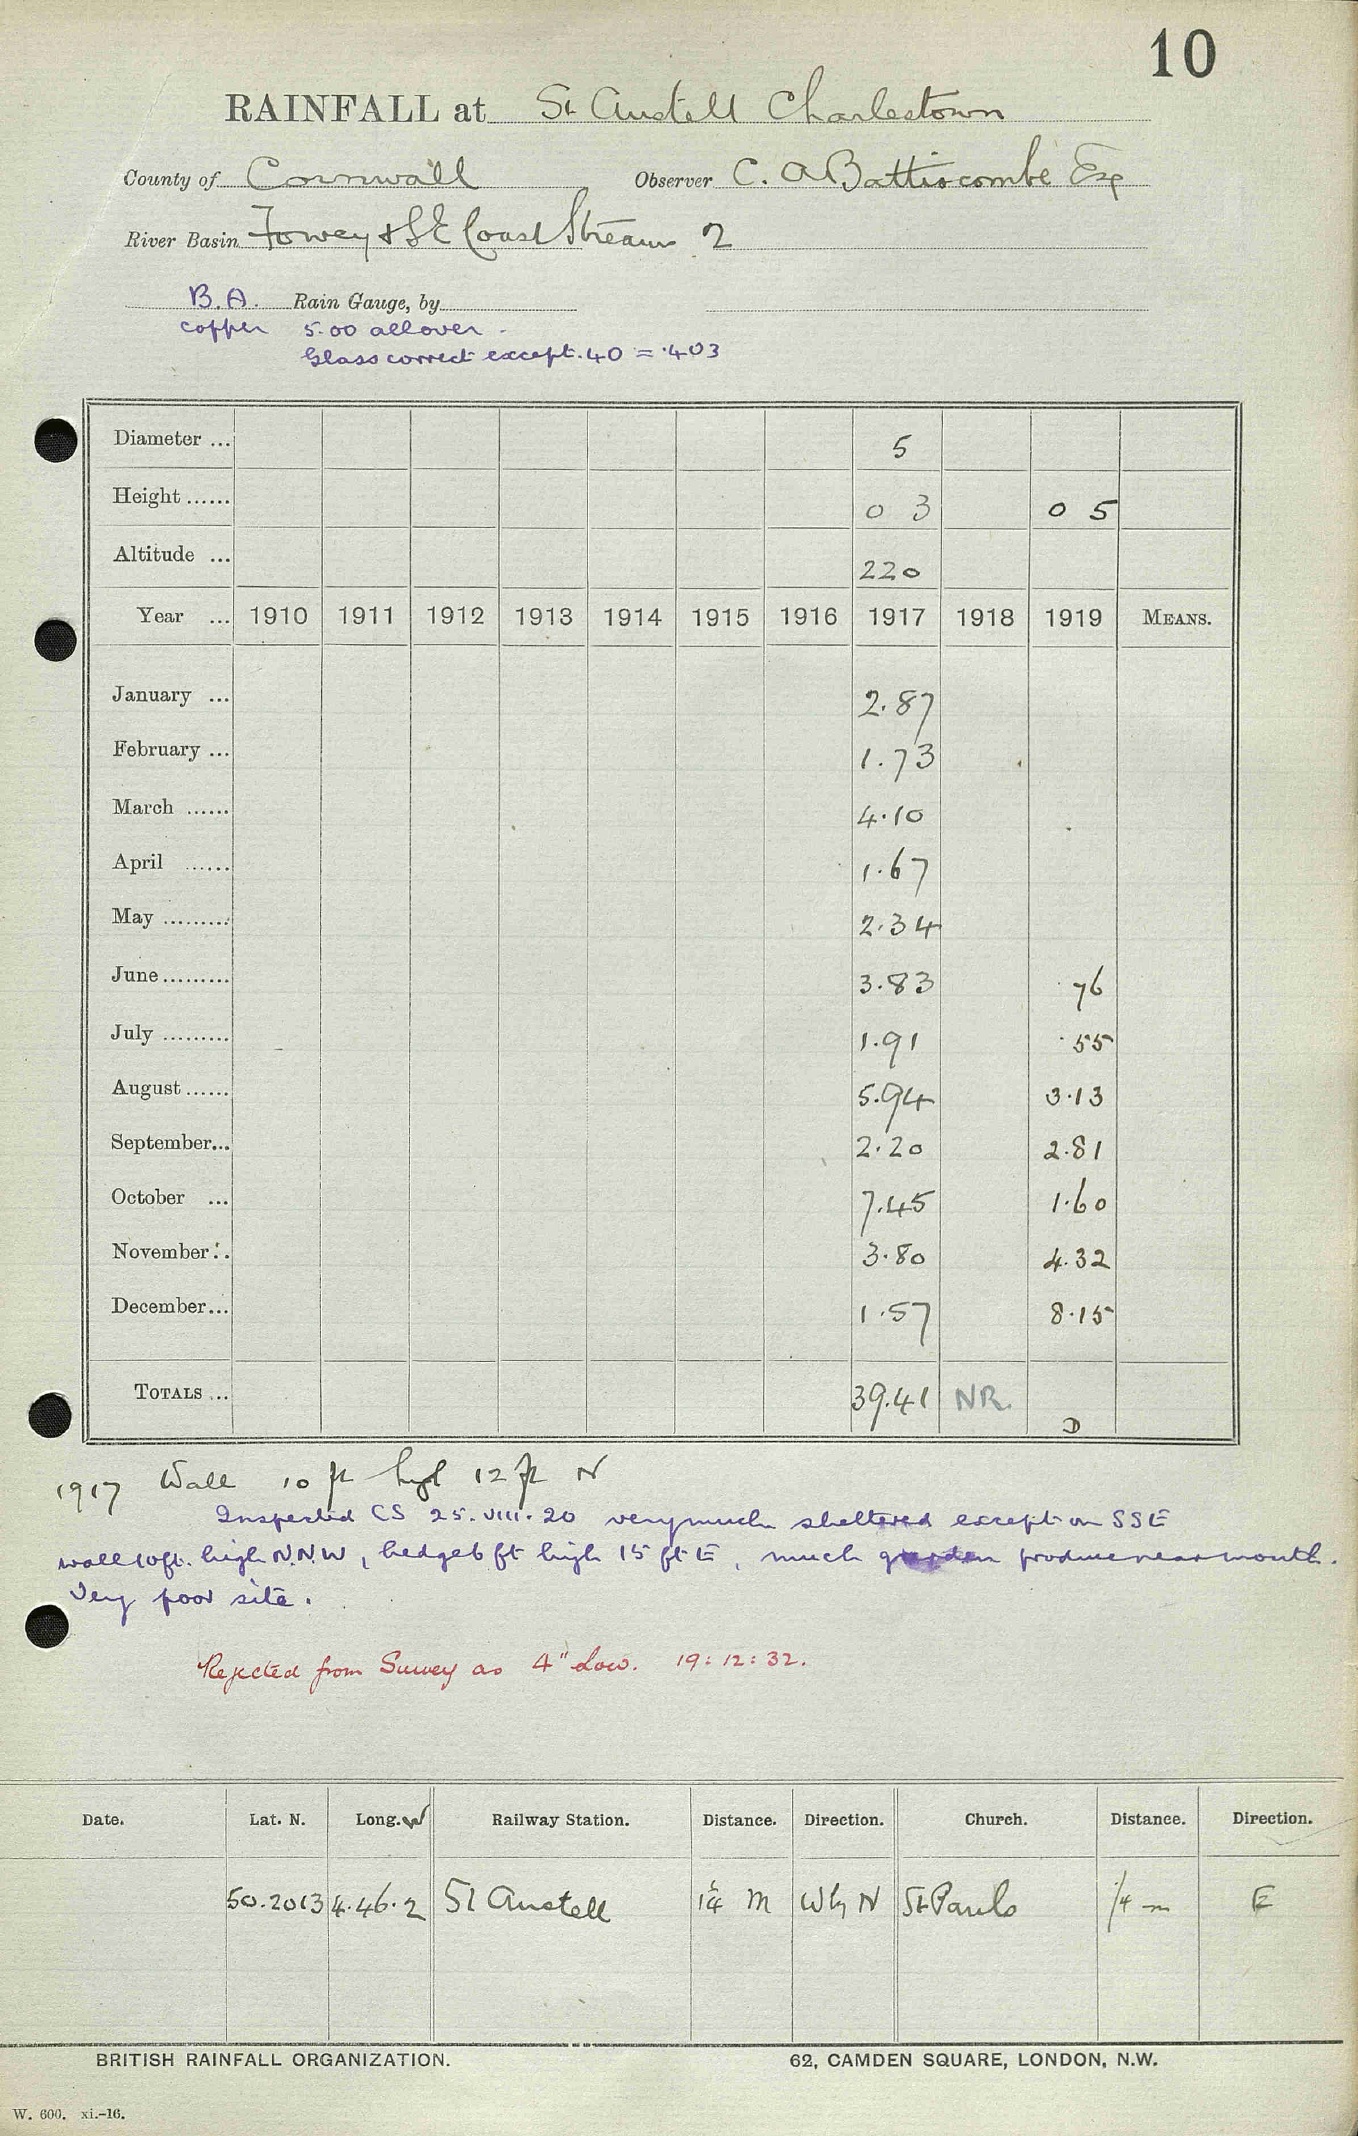 10
RAINFALL at St Austell Charlestown
County of Cornwall Observer C. A Battiscombe Esq
River Basin Fowey & SE Coast Streams 2
B.A. Rain Gauge, by
copper 5.00 all over.
Glass correct except .40 = .403
Diameter ... 5
Height ...... 0 3 0 5
Altitude ... 220
Year ... 1910 1911 1912 1913 1914 1915 1916 1917 1918 1919 MEANS.
January ... 2.87
February ... 1.73
March ...... 4.10
April ...... 1.67
May ......... 2.34
June ......... 3.83 .76
July ......... 1.91 .55
August ...... 5.94 3.13
September... 2.20 2.81
October ... 7.45 1.60
November... 3.80 4.32
December... 1.57 8.15
TOTALS ... 39.41 NR. D
1917 Wall 10 ft high 12 ft N
Inspected CS 25.VIII.20 very much sheltered except on SSE
wall 10ft. high N.N.W, hedge 6 ft high 15 ft E, much garden produce near mouth.
Very poor site.
Rejected from Survey as 4" Low. 19:12:32.
Date. Lat. N. Long. W Railway Station. Distance. Direction. Church. Distance. Direction.
50.20 13 4.46.2 St Austell 1¼ m W by N St Pauls ¼ m E
BRITISH RAINFALL ORGANIZATION. 62, CAMDEN SQUARE, LONDON, N.W.
W. 600. xi.-16.